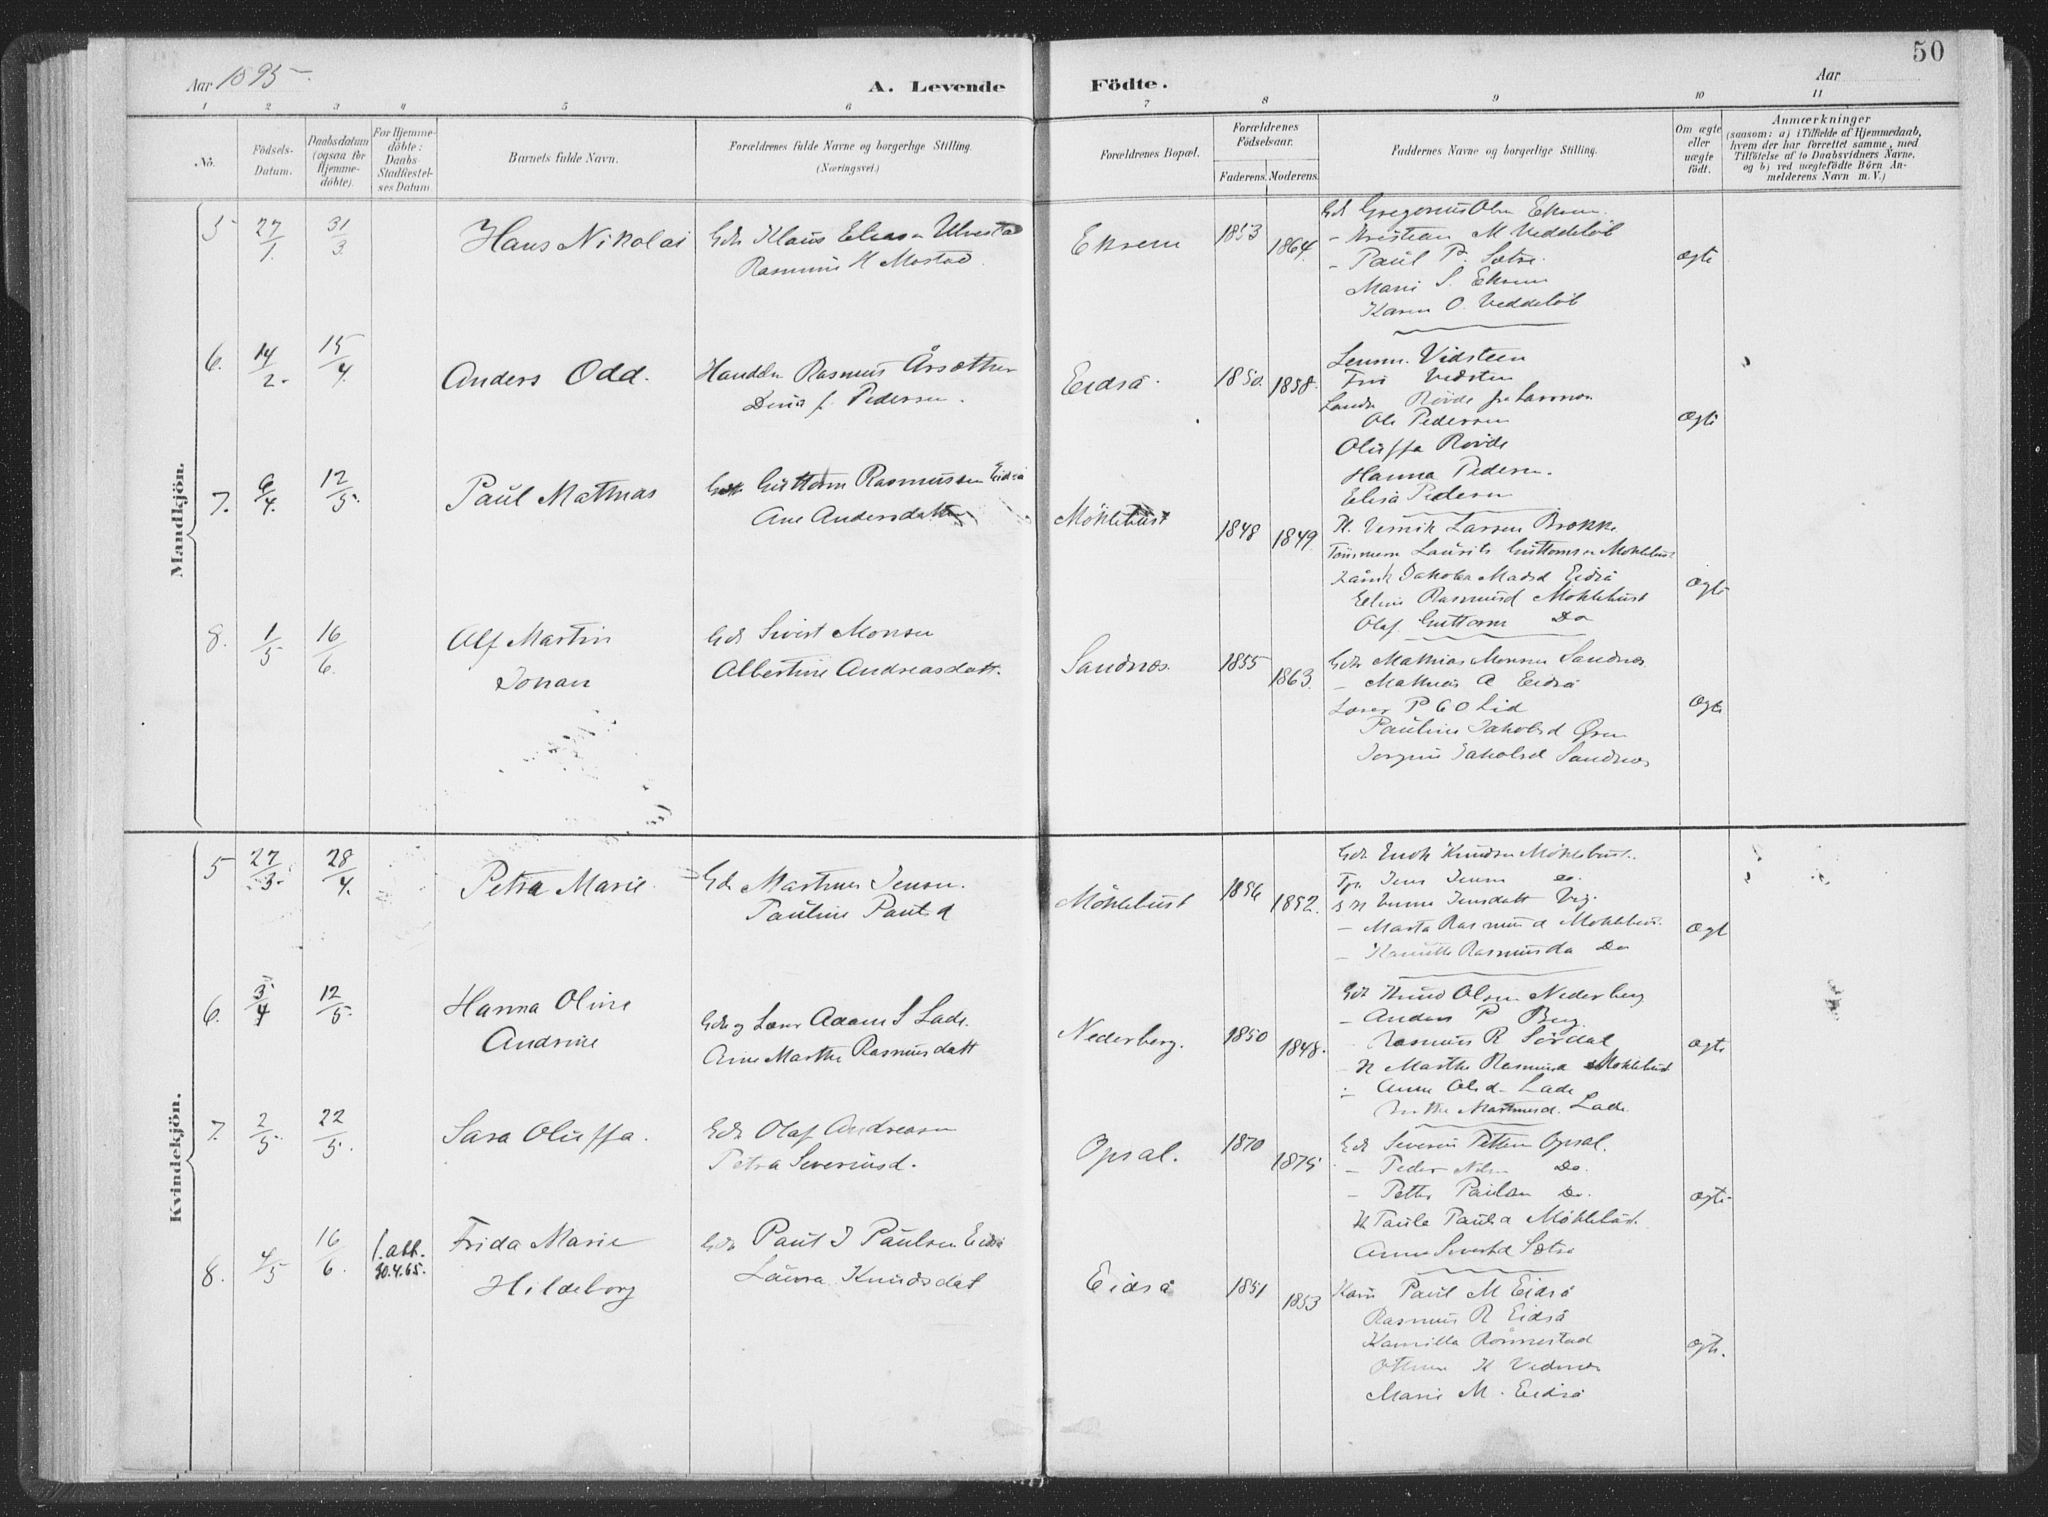 50
Aar 1895.
A. Levende
Födte.
Aar
1 2 3 4 5 6 7 8 9 10 11
No.
Födsels-
Datum.
Daabsdatum
(ogsaa for
Hjemme-
döbte).
For Hjemme-
döbte:
Daabs-
Stadfæstel-
ses Datum.
Barnets fulde Navn.
Forældrenes fulde Navne og borgerlige Stilling.
(Næringsvei.)
Forældrenes Bopæl.
Forældrenes
Födselsaar.
Faderens. Moderens.
Faddernes Navne og borgerlige Stilling.
Om ægte
eller
uægte
födt.
Anmærkninger
(saasom: a) i Tilfælde af Hjemmedaab,
hvem der har forrettet samme, med
Tilföielse af to Daabsvidners Navne,
og b) ved uægtefödte Börn An-
melderens Navn m. V.)
Mandkjön.
5 27/1. 31/3. Hans Nikolai
Gdr Klaus Elias Ulvestad
Rasmine K Mostad.
Eksem 1853 1864.
Gdr Gregorius Olsn Eksem.
- Kristian M Veddeløb
- Paul P. Sætre.
Marie S. Eksem
Karen O. Veddeløb
ægte
6. 14/2. 15/4. Anders Odd.
Handelm Rasmus Årsæther
Dina f. Pedersen.
Eidså. 1850. 1858.
Lensm. Vidsteen
Fru Vidsten
Landh Røvde fra Larsnes
Ole Pedersen
Oluffa Røvde
Hanna Pedersn.
Elisa Pedersn
Ægte
7. 6/4. 12/5. Paul Mathias
Guttorm Rasmussen Eidså
Ane Andersdatter
Möklebust 1848 1849.
K. Larsen Brække
Laurits Guttormsen Moklebust
Jakoba Madsd Eidså
Eline Rasmusd Moklebust
Olaf Guttorm Do
Ægte
8. 1/5 16/6. Alf Martin
Johan
Gdr Sivert Monsen
Albertine Andreasdatt.
Sandnes. 1855 1863.
Gdr Mathias Monsen Sandnes
- Mathias A Eidså
Lærer P G O Lid
Pauline Jakobsd Øren
Jorgine Jakobsd Sandnes
Ægte
Kvindekjön.
5 27/3. 28/4. Petra Marie.
Gdr Martinus Jensn.
Pauline Paulsd
Möklebust 1856 1852.
Gdr Enok Knudsn Möklebust.
Jens Jensn do.
Jensdatt Vig.
- Marta Rasmusd Moklebust.
- Rasmusda Do
Ægt
6. 3/4 12/5. Hanna Oline
Andrine
Gdr og Lærer Adam S Lade.
Ane Marthe Rasmusdatt
Nederberg. 1850 1848.
Gdr Knud Olsen Nederberg
- Anders P Berg
- Rasmus R Sördal
- K Marthe Rasmusd Moklebust
- Anne Olsd. Lade
Martinusd. Lade
Ægte
7. 2/5. 22/5. Sara Oluffa.
Gdr Olaf Andreasn
Petra Severinsd.
Opsal. 1870 1875
Gdr Severin Pettersn Opsal.
- Peder Nilsn Do.
- Petter Paulsen Do.
K Paula Paulsd Möklebust.
Anne Sivertsd Sætre
Ægte
8. 4/5 16/6. 1. att.
30.4.65. Frida Marie
Hildeborg
Gdr Paul J Paulsen Eidså
Laura Knudsdat
Eidså 1851 1853
Paul M Eidså
Rasmus R Eidså
Kamilla Rønnestad
K Vednes
Marie M. Eidså
ægte.